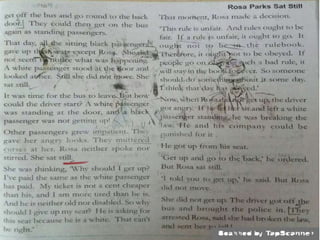 Rosa Parks Sat Still
get off the bus and go round to the back
door. They could then get on the bus
again as standing passengers.
That day, all the sitting black passengers
gave up their seats except Rosa. She did
not seem to notice what was happening.
A white passenger stood at the door and
looked at her. Still she did not move. She
sat still.
It was time for the bus to leave. But how
could the driver start? A white passenger
was standing at the door, and a black
passenger was not getting up!
Other passengers grew impatient. They
gave her angry looks. They muttered
curses at her. Rosa neither spoke nor
stirred. She sat still.
She was thinking, 'Why should I get up?
I've paid the same as the white passenger
has paid. My ticket is not a cent cheaper
than his, and I am more tired than he is.
And he is neither old nor disabled. So why
should I give up my seat? He is asking for
this seat because he is a white. That can't
be right.'
That moment, Rosa made a decision.
'This rule is unfair. And rules ought to be
fair. If a rule is unfair, it ought to go. It
ought not to be in the rulebook.
Therefore, it ought not to be obeyed. If
people go on obeying such a bad rule, it
will stay in the book for ever. So someone
should do something about it some day.
I think that day has arrived.'
Now, when Rosa did not get up, the driver
got angry. If he let her sit and left a white
passenger standing, he was breaking the
law. He and his company could be
punished for it
He got up from his seat.
'Get up and go to the back,' he ordered.
But Rosa sat still.
'I told you to get up,' he said. But Rosa
did not move.
She did not get up. The driver got off the
bus and brought the police in. They
arrested Rosa, said she had broken the law,
and sent her to jail!
Scanned by TapScanner